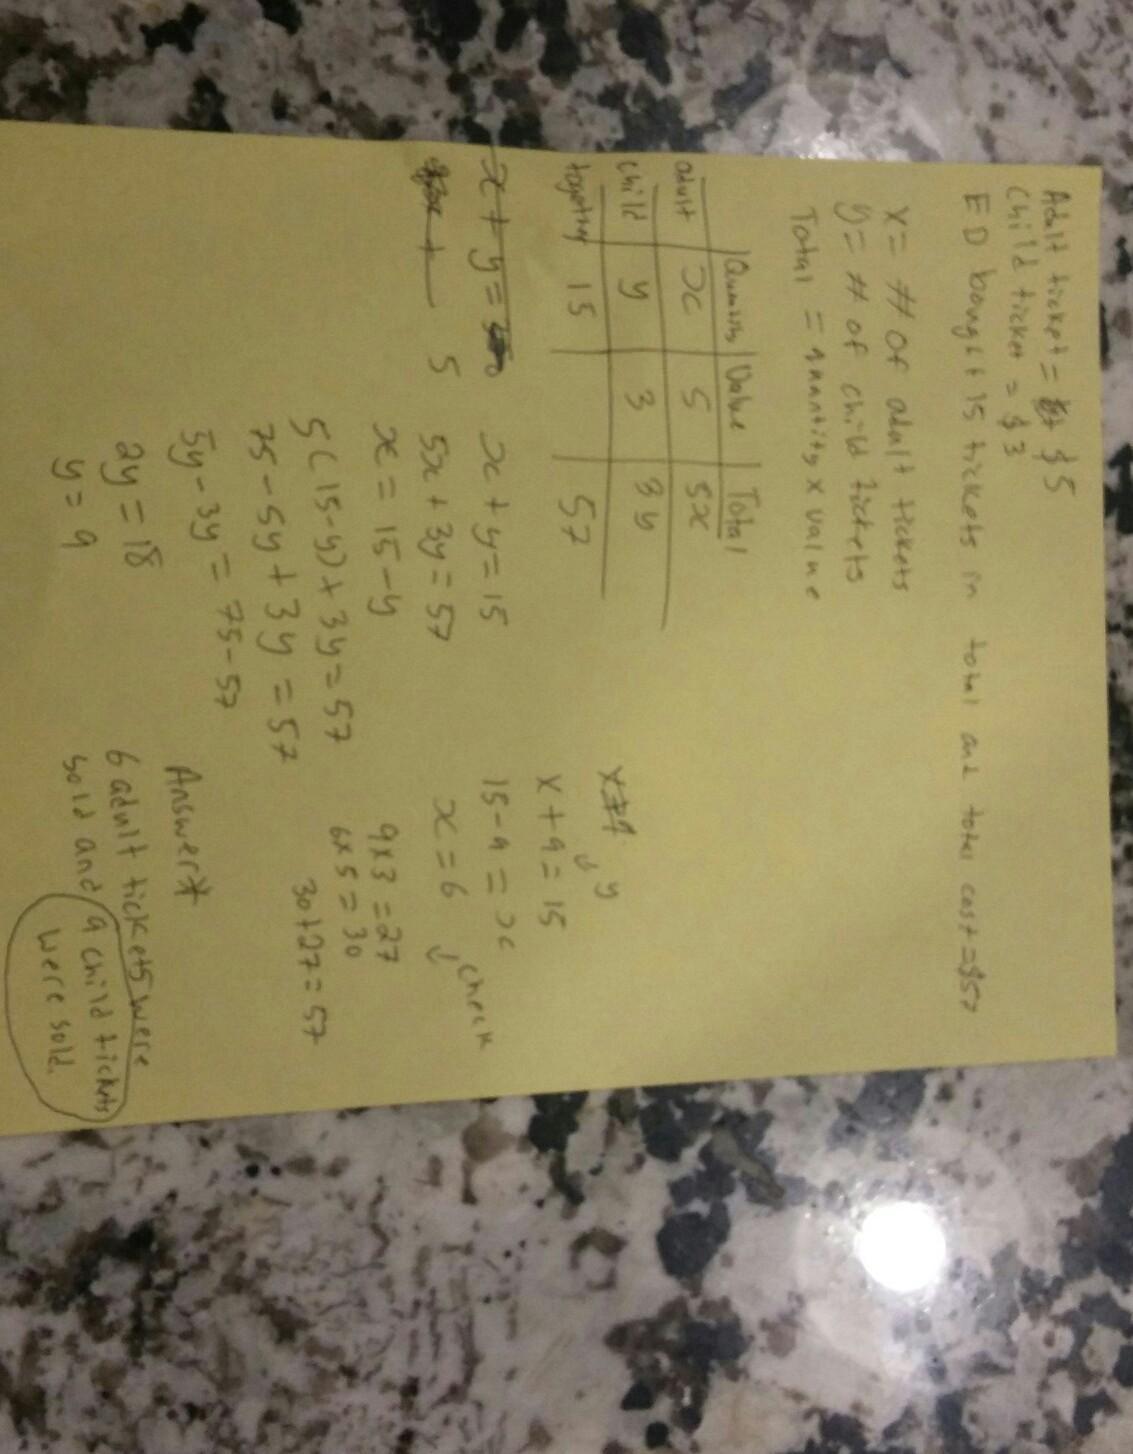 Adult ticket = $5
Child ticket = $3
ED bought 15 tickets in total and total cost = $57
x = # of adult tickets
y = # of child tickets
Total = quantity x value
Quantity Value Total
adult x 5 5x
child y 3 3y
together 15 57
x + y =
5
x + y = 15
5x + 3y = 57
x = 15 - y
5(15-y) + 3y = 57
75 - 5y + 3y = 57
5y - 3y = 75 - 57
2y = 18
y = 9
y
x + 9 = 15
15 - 9 = x
x = 6
check
9x3 = 27
6x5 = 30
30+27 = 57
Answer*
6 adult tickets were
sold and 9 child tickets
were sold.